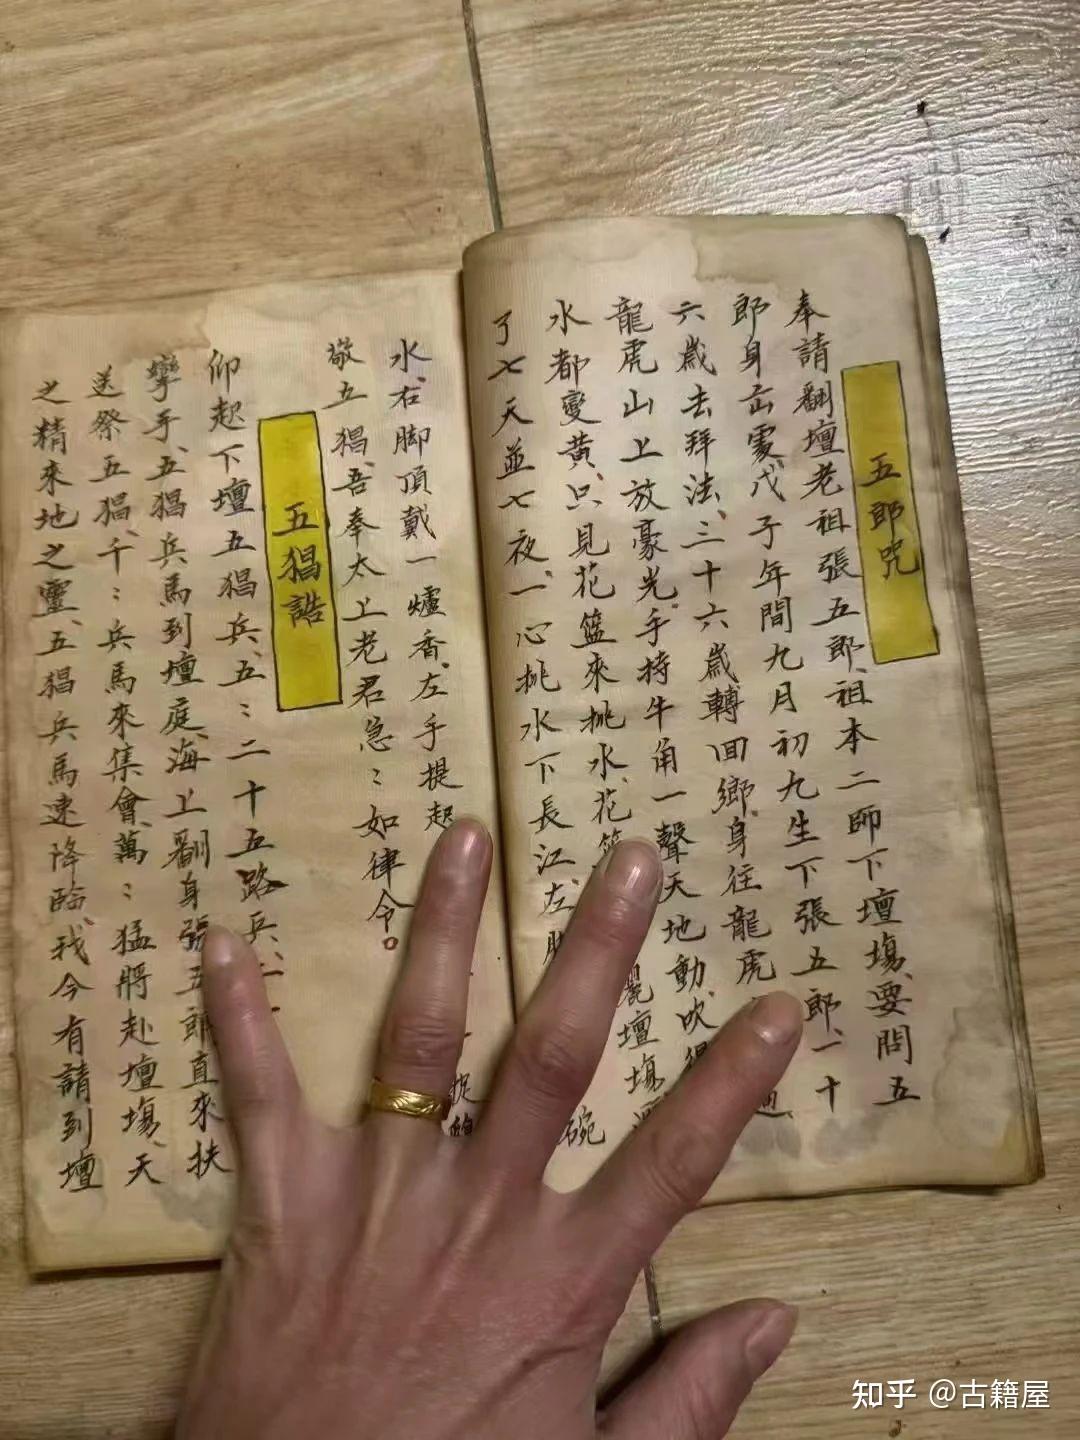 五郎咒
奉請翻壇老祖張五郎、祖本二師下壇場、要問五
郎身云處、戊子年間九月初九生下張五郎、一十
六歲去拜法、三十六歲轉回鄉、身往龍虎
龍虎山上放豪光、手持牛角一聲天地動、吹
水都變黃、只見花籃來挑水、花 壇場
了七天並七夜、一心挑水下長江、左 碗
水、右脚頂戴一爐香、左手提起
敬五猖、吾奉太上老君急〻如律令。
五猖誥
仰起下壇五猖兵、五〻二十五路兵、
孿手、五猖兵馬到壇庭、海上翻身張五郎直來扶
送祭五猖、千〻兵馬來集會、萬〻猛將赴壇場、天
之精來地之靈、五猖兵馬速降臨、我今有請到壇
知乎 @古籍屋